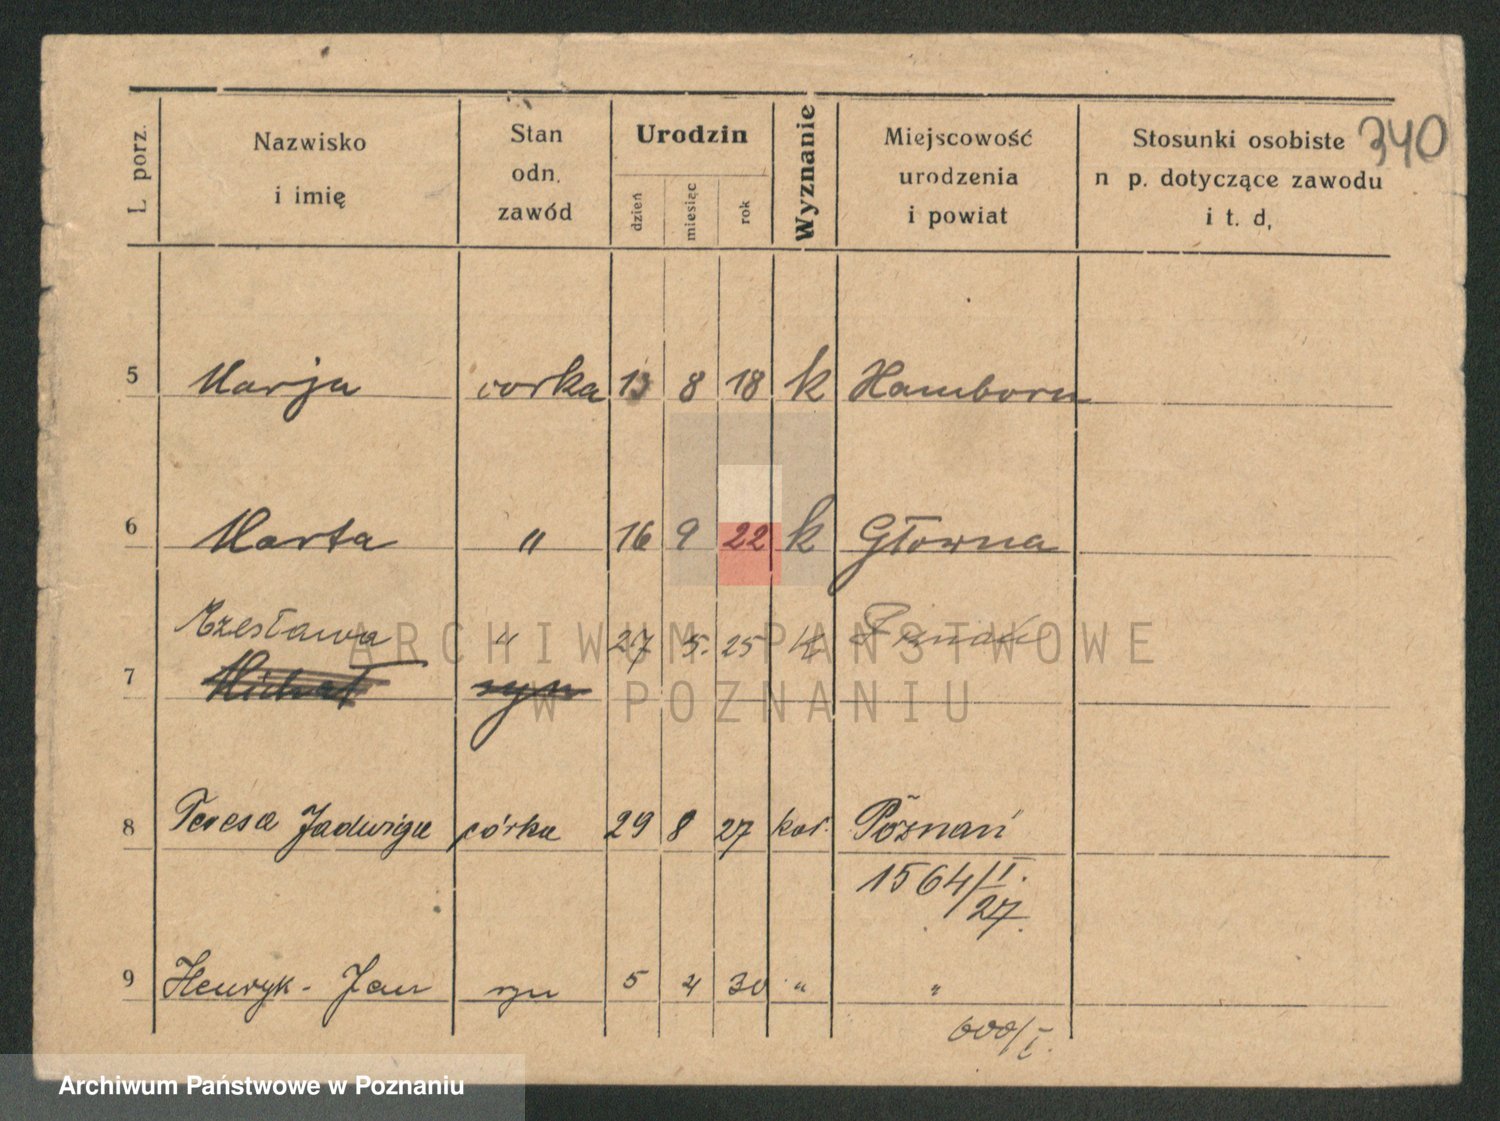 340
L porz.
Nazwisko
i imię
Stan
odn.
zawód
Urodzin
dzień
miesiąc
rok
Wyznanie
Miejscowość
urodzenia
i powiat
Stosunki osobiste
n p. dotyczące zawodu
i t. d,
5 Marja corka 13 8 18 k Hamborn
6 Marta " 16 9 22 k Główna
Czesława " 27 5. 25 k Poznań
7 Michał syn
8 Teresa Jadwiga córka 29 8 27 kat. Poznań
1564/I.
27.
9 Henryk - Jan syn 5 4 30 " "
600/I.
ARCHIWUM PAŃSTWOWE
W POZNANIU
Archiwum Państwowe w Poznaniu